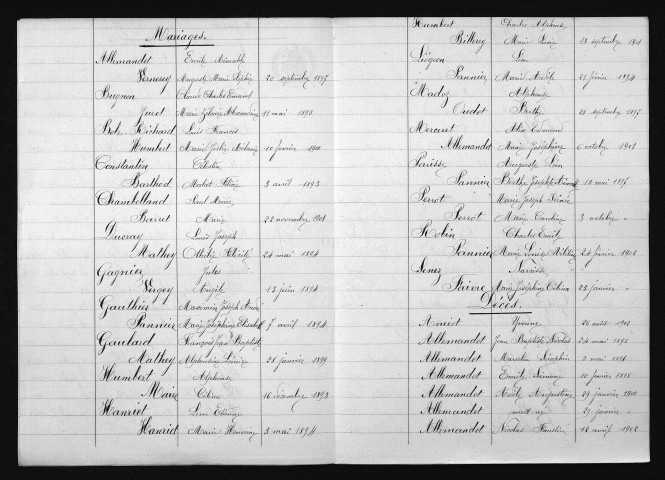 Mariages.
Allemandet Emile Aimable
Vernerey Auguste Marie Sophie 20 septembre 1897
Bugnon Claude Charles Emmanuel
Juret Marie Zélonie Alexandrine 11 mai 1895
Bole Richard Louis Francois
Humbert Marie Julie Antonie 10 février 1900
Constantin Célestin
Barthod Malot Félicie 3 avril 1893
Chambelland Paul Marie
Barret Marie 22 novembre 1901
Ducray Louis Joseph
Mathey Othilie Félicité 24 mai 1894
Gagnier Jules
Vergey Angèle 13 juin 1894
Gauthier Maximin Joseph
Pannier Marie Joséphine Elisabeth 7 avril 1894
Gaulard François Jean Baptiste
Mathey Alphonsine 28 janvier 1899
Humbert Alphonse
Maire Célina 16 décembre 1893
Hanriet Léon
Hanriet Marie Honorine 3 mai 1894
Humbert Charles Alphonse
Billerey Marie 23 septembre 1901
Liégeon Léon
Pannier Marie Adèle 27 février 1894
Madoz Alphonse
Oudot Berthe 25 septembre 1895
Mercuet Alix Edmond
Allemandet Marie Joséphine 6 octobre 1901
Parisse Auguste Léon
Pannier Berthe Joseph 13 mai 1896
Perrot Marie Joseph
Perrot Marie Caroline 3 octobre "
Robin Charles Emile
Pannier Marie Louise 24 février 1902
Senez Narcisse
Faivre Marie Joséphine Célina 23 janvier "
Décès.
Amiot Yvonne 26 août 1902
Allemandet Jean Baptiste Nicolas 24 mai 1895
Allemandet Séraphin 3 mai 1896
Allemandet Emile 10 février 1898
Allemandet Adèle Augustine 29 janvier 1900
Allemandet mort-né 29 janvier "
Allemandet Nicolas 12 avril 1902